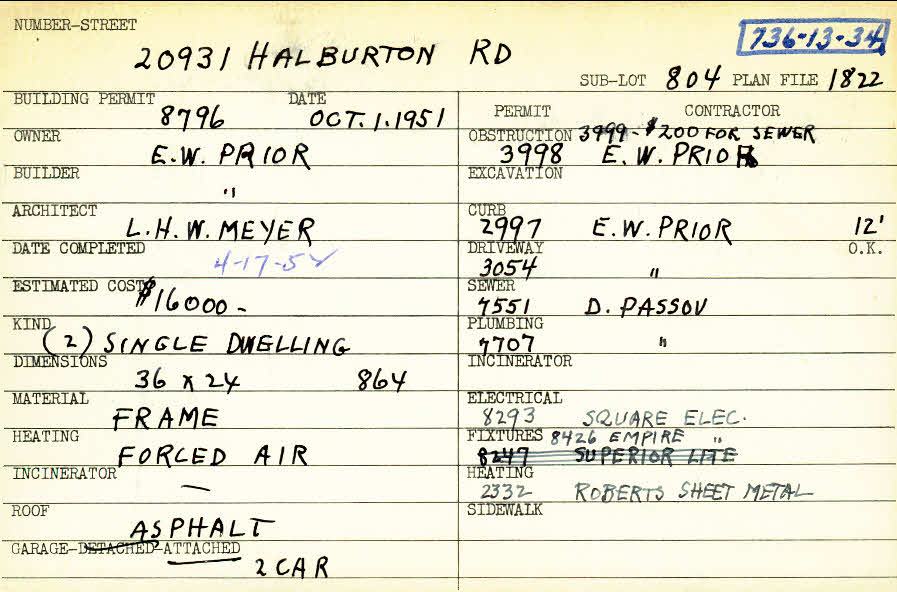 NUMBER-STREET
20931 HALBURTON RD
736-13-34
SUB-LOT 804 PLAN FILE 1822
BUILDING PERMIT 8796 DATE OCT. 1. 1951
OWNER E.W. PRIOR
BUILDER "
ARCHITECT L.H.W. MEYER
DATE COMPLETED 4-17-52
ESTIMATED COST $16000-
KIND (2) SINGLE DWELLING
DIMENSIONS 36 x 24 864
MATERIAL FRAME
HEATING FORCED AIR
INCINERATOR —
ROOF ASPHALT
GARAGE-DETACHED-ATTACHED
2 CAR
PERMIT CONTRACTOR
OBSTRUCTION 3999-$200 FOR SEWER
3998 E.W. PRIOR
EXCAVATION
CURB
2997 E.W. PRIOR 12'
DRIVEWAY O.K.
3054 "
SEWER
7551 D. PASSOV
PLUMBING
7707 "
INCINERATOR
ELECTRICAL
8293 SQUARE ELEC.
FIXTURES 8426 EMPIRE "
8247 SUPERIOR LITE
HEATING
2332 ROBERTS SHEET METAL
SIDEWALK